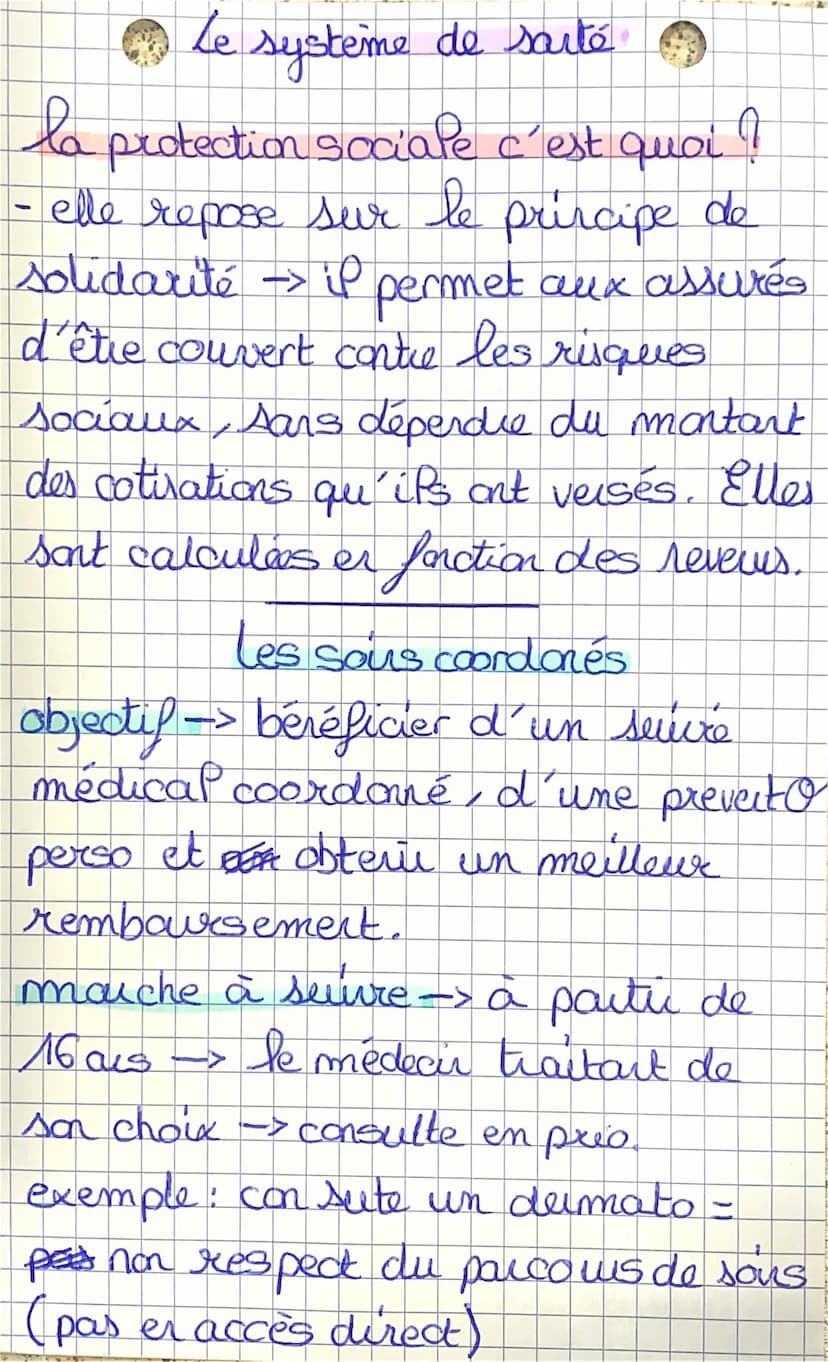 Le système de santé
la protection sociale c'est quoi ?
- elle repose sur le principe de
solidarité -> il permet aux assurés
d'être couvert contre les risques
sociaux, sans dépendre du montant
des cotisations qu'ils ont versés. Elles
sont calculées en fonction des revenus.
les soins coordonés
objectif -> bénéficier d'un suivie
médical coordonné, d'une prevent°
perso et obtenir un meilleur
remboursement.
marche à suivre -> à partir de
16 ans -> le médecin traitant de
son choix -> consulte en prio.
exemple : consute un dermato =
non respect du parcours de soins
(pas en accès direct)